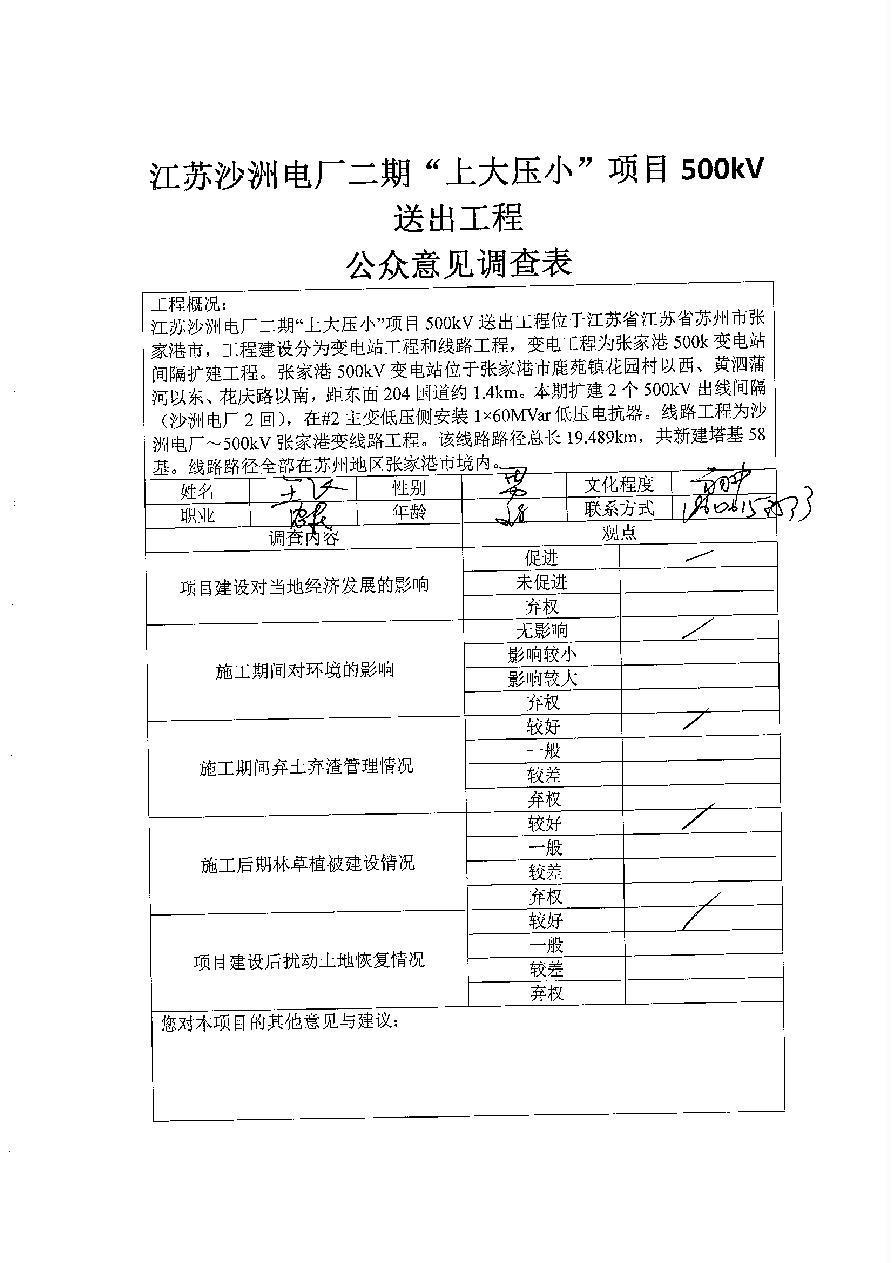 江苏沙洲电厂二期“上大压小”项目 500kV
送出工程
公众意见调查表
工程概况：
江苏沙洲电厂二期“上大压小”项目 500kV 送出工程位于江苏省江苏省苏州市张
家港市，工程建设分为变电站工程和线路工程，变电工程为张家港 500k 变电站
间隔扩建工程。张家港 500kV 变电站位于张家港市鹿苑镇花园村以西、黄泗蒲
河以东、花庆路以南，距东面 204 国道约 1.4km。本期扩建 2 个 500kV 出线间隔
（沙洲电厂 2 回），在#2 主变低压侧安装 1×60MVar 低压电抗器。线路工程为沙
洲电厂～500kV 张家港变线路工程。该线路路径总长 19.489km，共新建塔基 58
基。线路路径全部在苏州地区张家港市境内。
姓名 性别 男 文化程度 高中
职业 年龄 联系方式
调查内容 观点
促进
项目建设对当地经济发展的影响
未促进
弃权
无影响
影响较小
施工期间对环境的影响
影响较大
弃权
较好
一般
施工期间弃土弃渣管理情况
较差
弃权
较好
一般
施工后期林草植被建设情况
较差
弃权
较好
一般
项目建设后扰动土地恢复情况
较差
弃权
您对本项目的其他意见与建议：